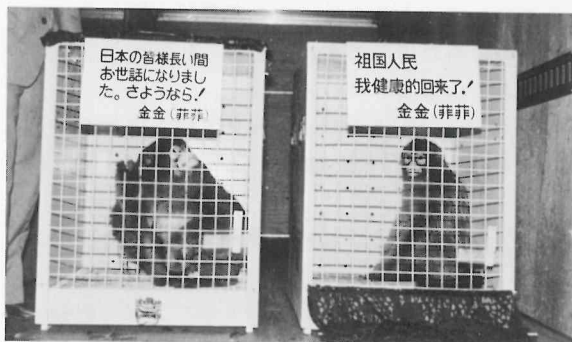 日本の皆様長い間
お世話になりまし
た。さようなら!
金金(菲菲)
祖国人民
我健康的回来了!
金金(菲菲)